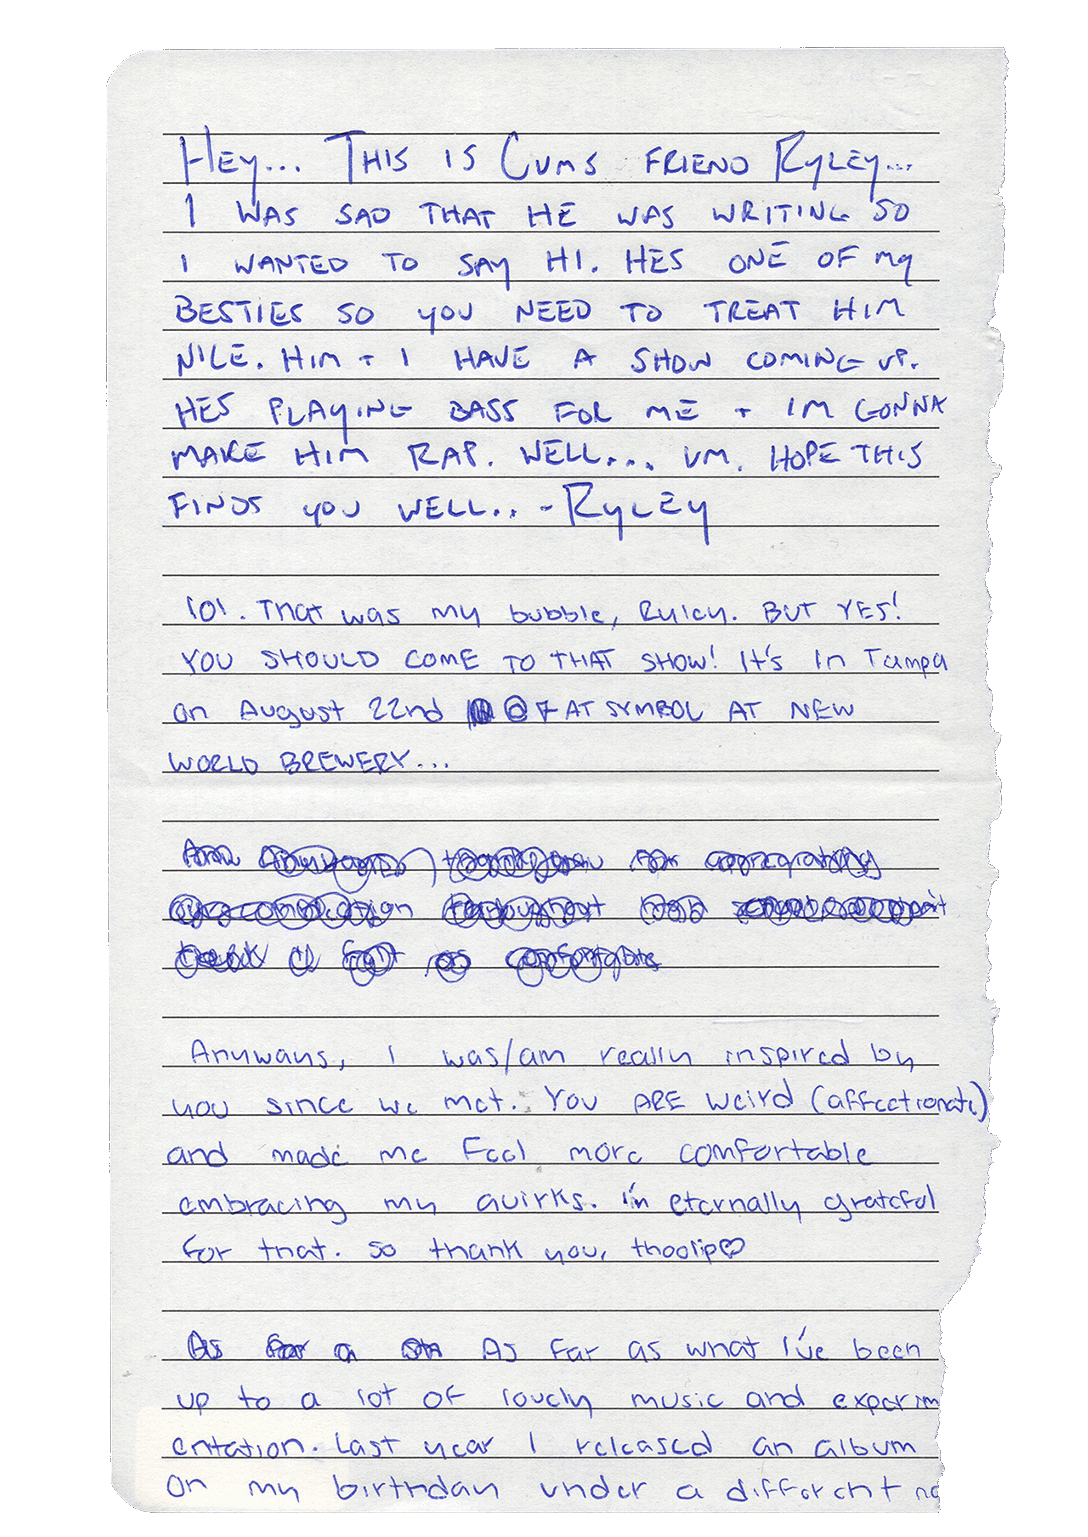 HEY... THIS IS CUMS FRIEND RYLEY...
I WAS SAD THAT HE WAS WRITING SO
I WANTED TO SAY HI. HES ONE OF my
BESTIES SO YOU NEED TO TREAT HIM
NICE. HIM + I HAVE A SHOW COMING UP.
HES PLAYING BASS FOR ME + IM GONNA
MAKE HIM RAP. WELL... UM. HOPE THIS
FINDS YOU WELL.. - RYLEY
lol. That was my bubble, Ryley. BUT YES!
YOU SHOULD COME TO THAT SHOW! It's in Tampa
on August 22nd @ 7 AT SYMBOL AT NEW
WORLD BREWERY...
Anyways, I was/am really inspired by
you since we met. YOU ARE weird (affectionate)
and made me feel more comfortable
embracing my quirks. I'm eternally grateful
for that. so thank you, thoolip♡
As far as what I've been
up to a lot of lovely music and experim
entation. Last year I released an album
on my birthday under a different na